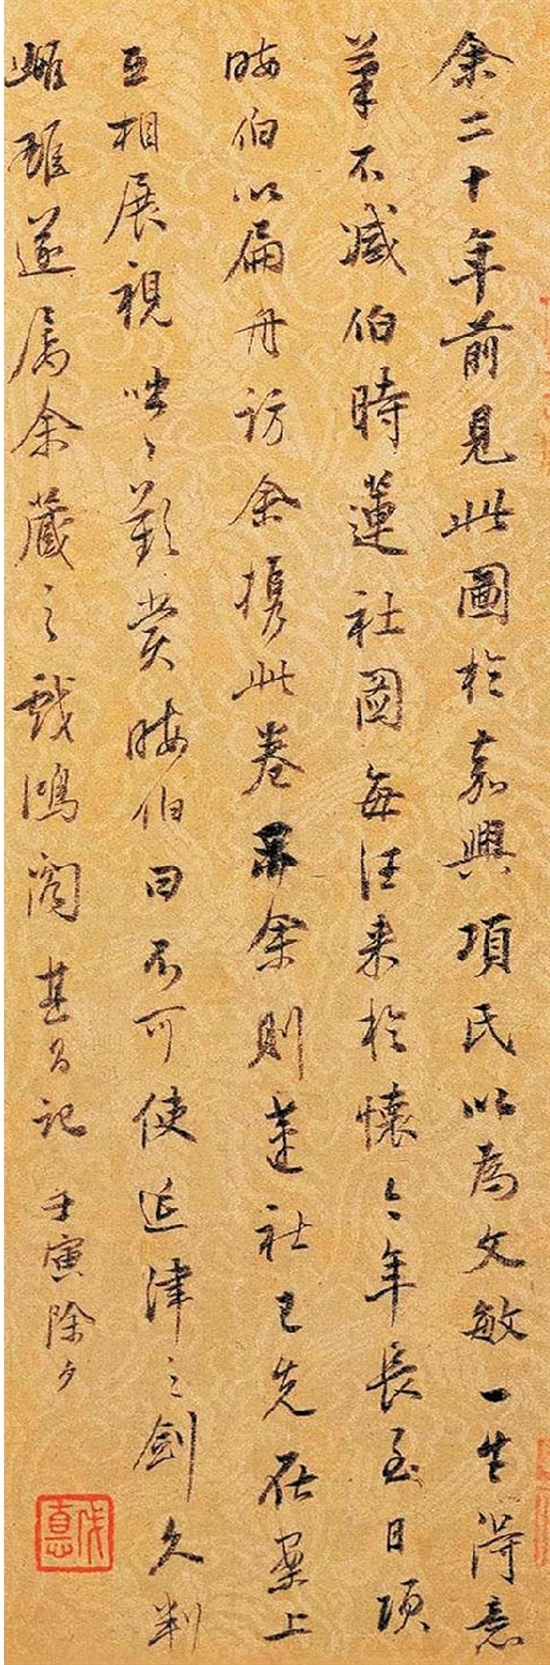 余二十年前見此圖於嘉興項氏以為文敏一生得意
筆不減伯時蓮社圖每往來於懷今年長至日項
晦伯以扁舟訪余攜此卷示余則蓮社已先在案上
互相展視咄〻歎賞晦伯曰不可使延津之劍久判
雌雄遂屬余藏之戲鴻閣其昌記 壬寅除夕